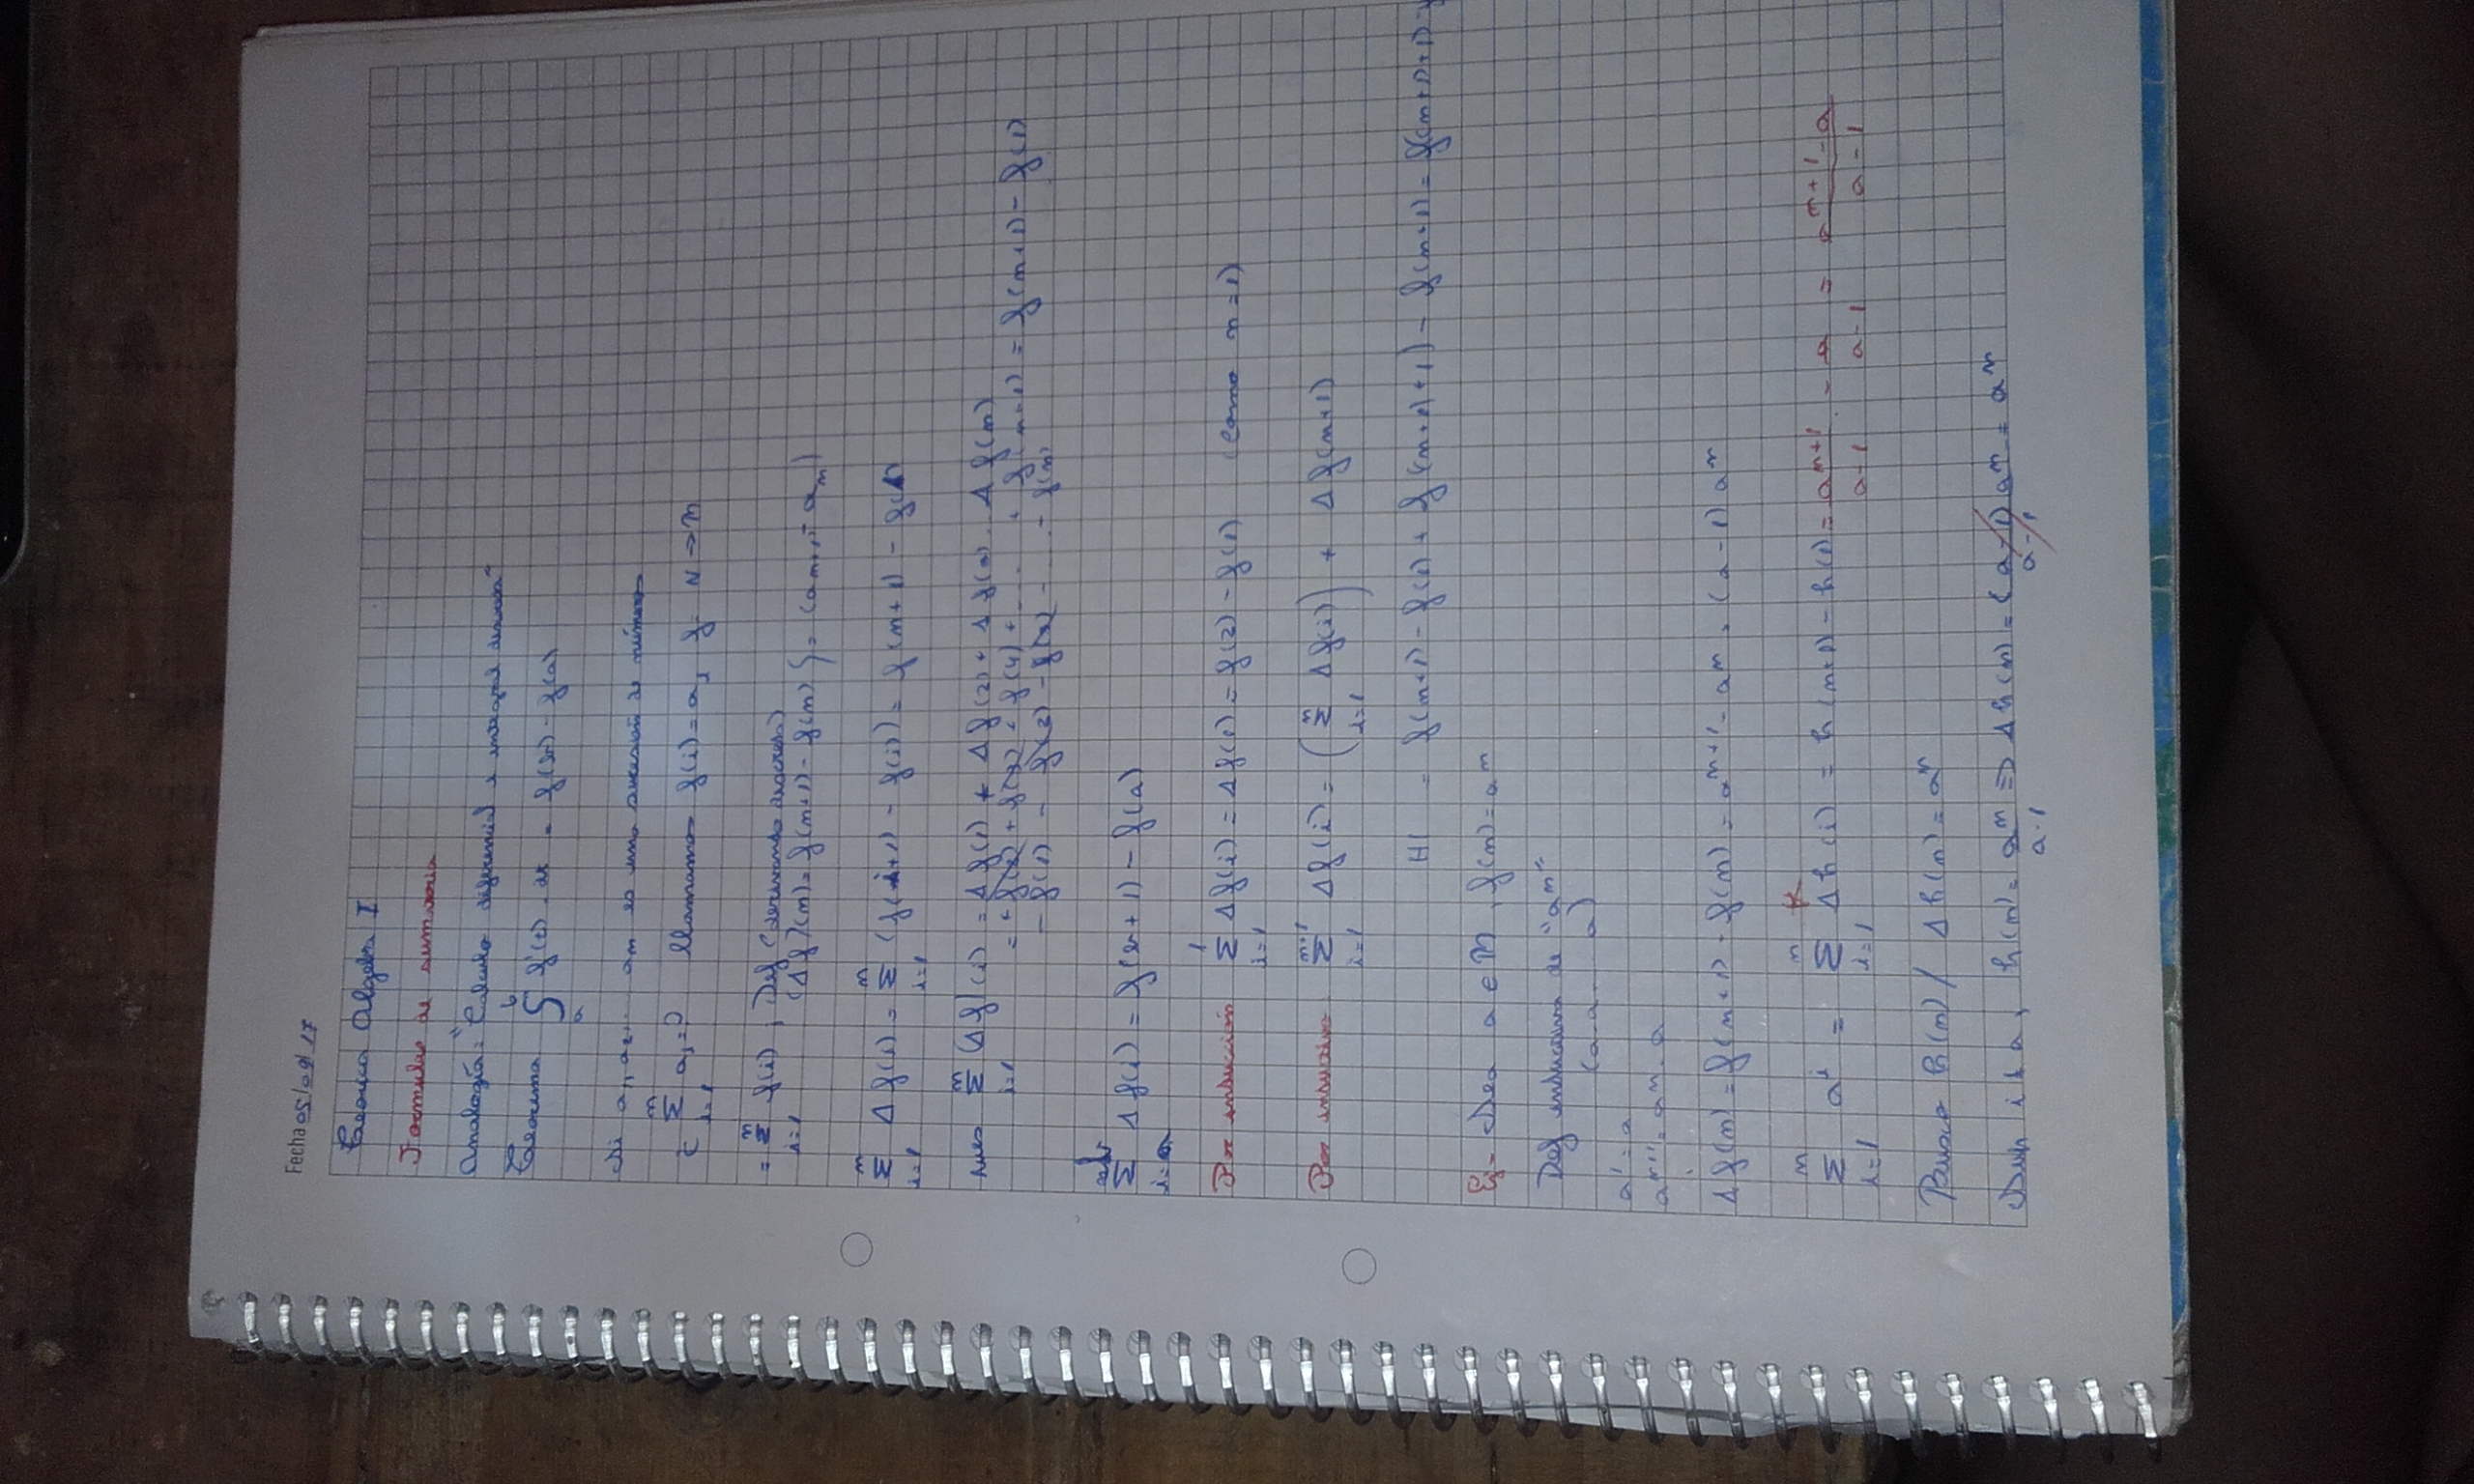 Fecha 05/09/17
Teorico Algebra I
Formulas de sumatoria
Analogía: "Calculo diferencial e integral
Teorema ∫_a^b f'(t) dt = f(b) - f(a)
Si a₁, a₂, ... aₙ es una sucesión de números
¿ Σ_{i=1}^{n} aᵢ = ? llamamos f(i) = aᵢ f: N → ℝ
= Σ_{i=1}^{n} f(i) ; Def (derivando
(Δf)(n) = f(n+1) - f(n) } = (aₙ₊₁ - aₙ)
Σ_{i=1}^{n} Δf(i) = Σ_{i=1}^{n} (f(i+1) - f(i)) = f(n+1) - f(1)
pues Σ_{i=1}^{n} (Δf)(i) = Δf(1) + Δf(2) + Δf(3) ... Δf(n)
= + f(2) + f(3) + f(4) + ..... + f(n+1) = f(n+1) - f(1)
- f(1) - f(2) - f(3) - .... - f(n)
Δf(i) = f(b+1) - f(a)
Por inducción Σ_{i=1}^{1} Δf(i) = Δf(1) = f(2) - f(1) (como n=1)
Σ_{i=1}^{n+1} Δf(i) = (Σ_{i=1}^{n} Δf(i)) + Δf(n+1)
HI = f(n+1) - f(1) + f((n+1)+1) - f(n+1) = f((n+1)+1) -
Ej- Sea a ∈ ℝ, f(n) = aⁿ
Def inductiva de "aⁿ"
(a.a... a)
a¹ = a
aⁿ⁺¹ = aⁿ . a
Δf(n) = f(n+1) - f(n) = aⁿ⁺¹ - aⁿ = (a-1) aⁿ
Σ_{i=1}^{n} aⁱ = Σ_{i=1}^{n} Δh(i) = h(n+1) - h(1) = aⁿ⁺¹/(a-1) - a/(a-1) = (aⁿ⁺¹ - a)/(a-1)
Busco h(n) / Δh(n) = aⁿ
a, h(n) = aⁿ/(a-1) ⇒ Δh(n) = (a-1)aⁿ/(a-1) = aⁿ